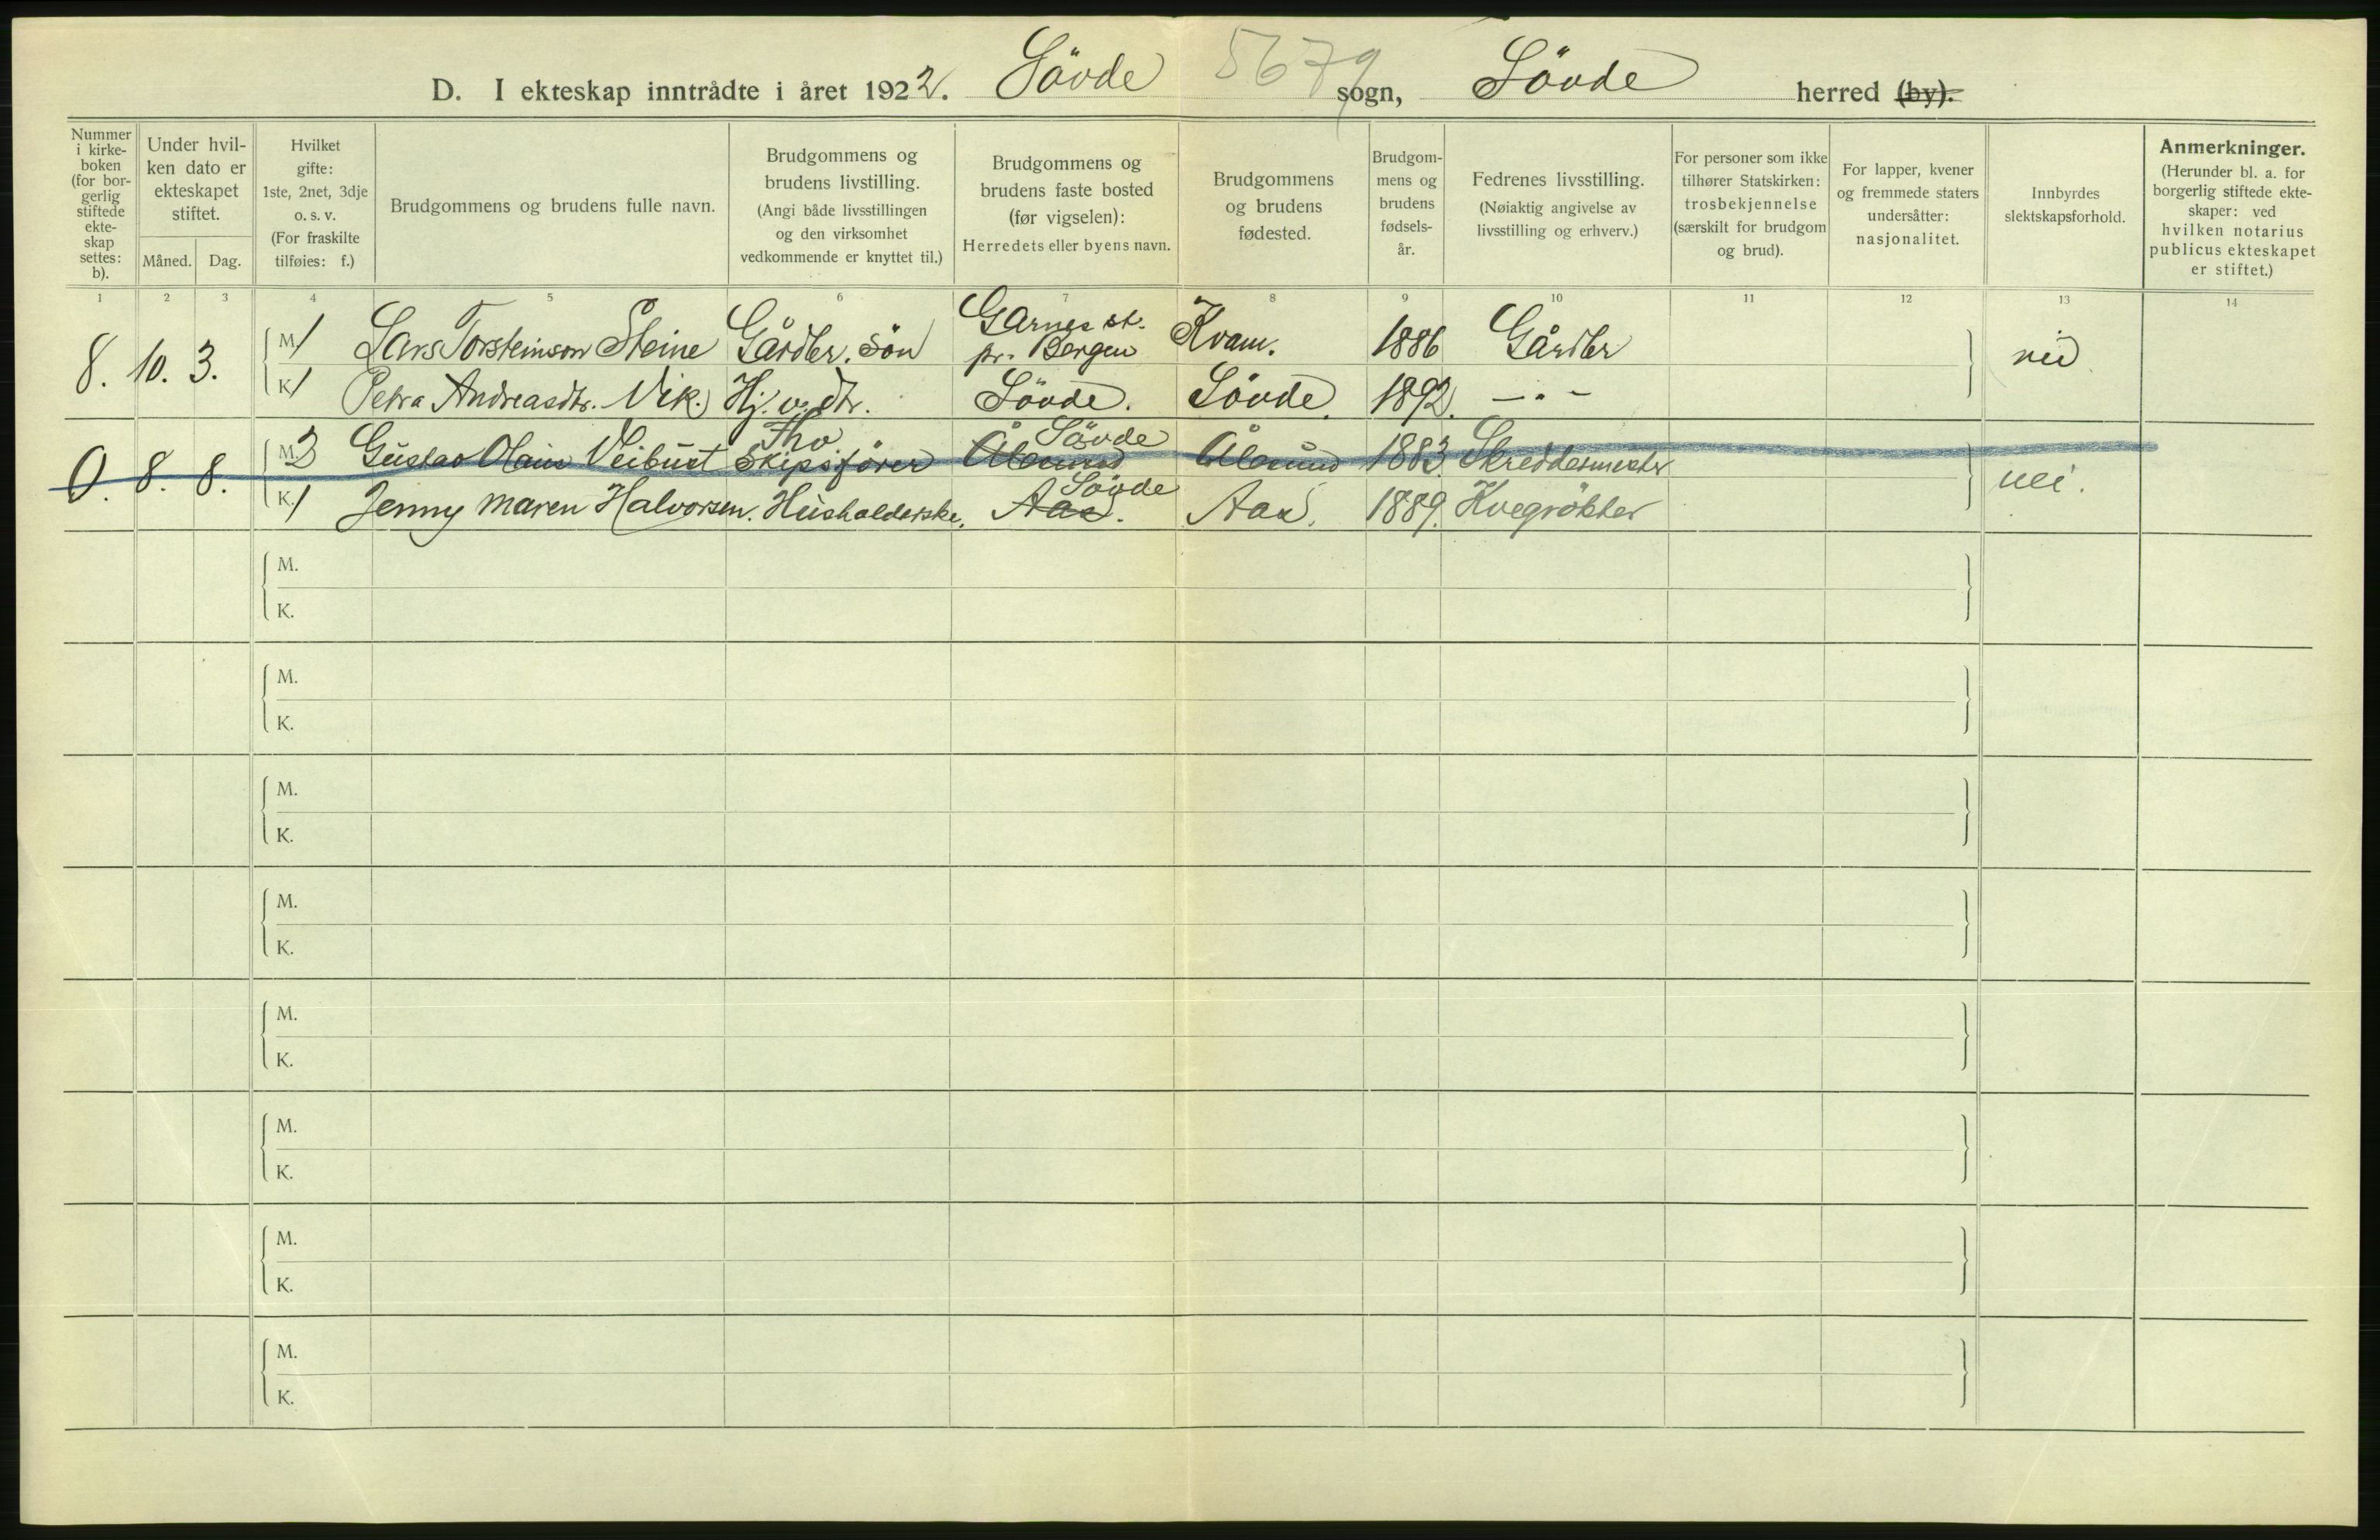 D. I ekteskap inntrådte i året 1922. Sövde 5679 sogn, Sövde herred (by).
Nummer i kirke-boken (for bor-gerlig stiftede ekte-skap settes: b).
Under hvil-ken dato er ekteskapet stiftet.
Måned. Dag.
Hvilket gifte: 1ste, 2net, 3dje o. s. v. (For fraskilte tilføies: f.)
Brudgommens og brudens fulle navn.
Brudgommens og brudens livstilling. (Angi både livsstillingen og den virksomhet vedkommende er knyttet til.)
Brudgommens og brudens faste bosted (før vigselen): Herredets eller byens navn.
Brudgommens og brudens fødested.
Brudgom-mens og brudens fødsels-år.
Fedrenes livsstilling. (Nøiaktig angivelse av livsstilling og erhverv.)
For personer som ikke tilhører Statskirken: trosbekjennelse (særskilt for brudgom og brud).
For lapper, kvener og fremmede staters undersåtter: nasjonalitet.
Innbyrdes slektskapsforhold.
Anmerkninger. (Herunder bl. a. for borgerlig stiftede ekte-skaper: ved hvilken notarius publicus ekteskapet er stiftet.)
1 2 3 4 5 6 7 8 9 10 11 12 13 14
8. 10. 3. M. 1 Lars Torsteinson Steine Gårdbr. sön Garnes st. pr. Bergen Kvam. 1886 Gårdbr nei
K. 1 Petra Andreasdtr. Vik. Hj. v. dtr. Sövde. Sövde. 1892. — " —
0. 8. 8. M. 2 Gustav Olaus Veibust Skipsförer Ålesund Sövde Ålesund 1883 Skreddermester nei.
K. 1 Jenny Maren Halvorsen. Husholderske. Aas. Sövde Aas. 1889. Kvegrökter
M.
K.
M.
K.
M.
K.
M.
K.
M.
K.
M.
K.
M.
K.
M.
K.